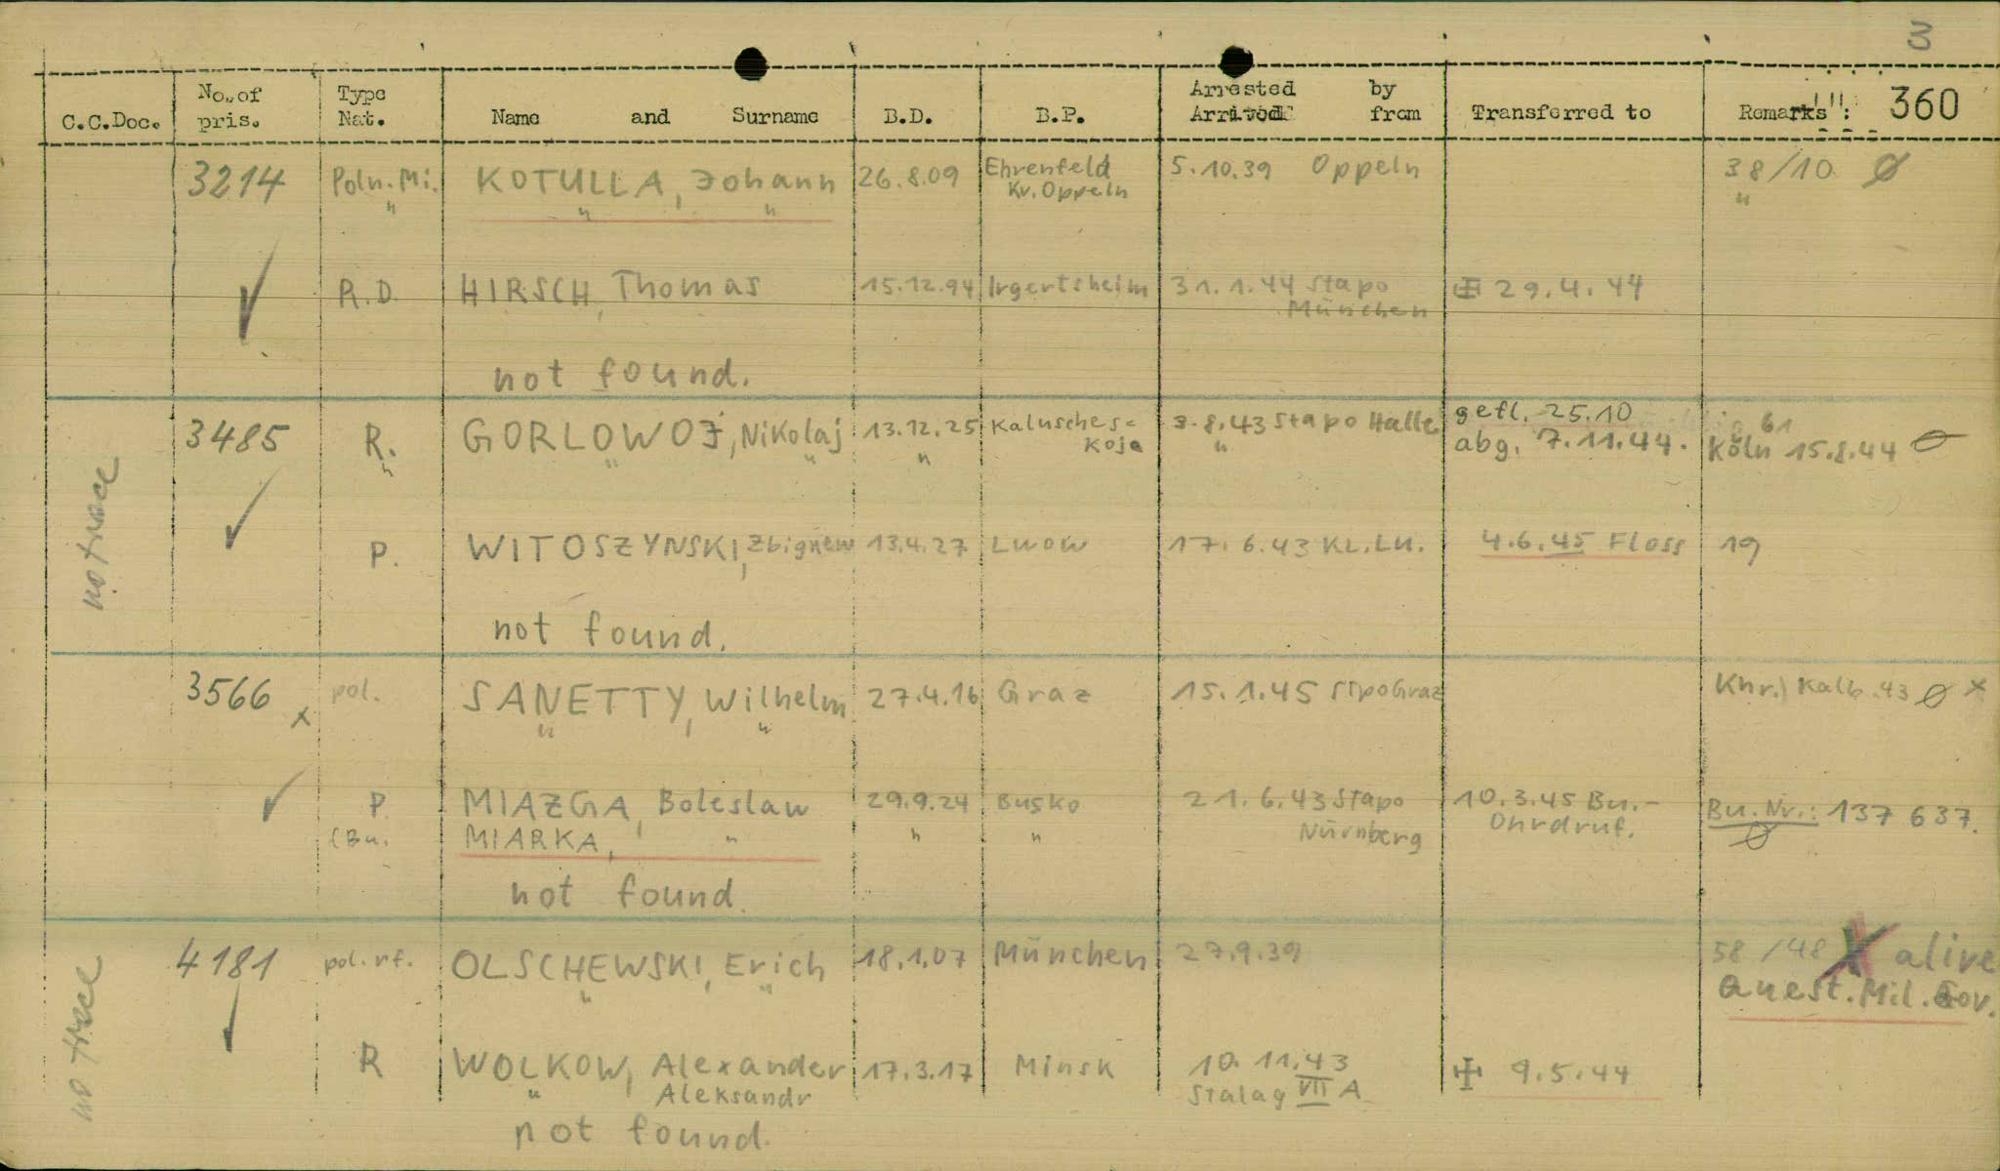 3
C.C.Doc. No. of pris. Type Nat. Name and Surname B.D. B.P. Arrested by Arrived from Transferred to Remarks : 360
3214 Poln. Mi. KOTULLA, Johann 26.8.09 Ehrenfeld Kr. Oppeln 5.10.39 Oppeln 38/10 Ø
" " " "
R.D. HIRSCH, Thomas 15.12.94 Irgertsheim 31.1.44 Stapo München 29.4.44
not found.
no trace
3485 R. GORLOWOJ, Nikolaj 13.12.25 Kalusches= Koja 3.8.43 Stapo Halle gefl. 25.10 abg. 7.11.44. Köln 15.8.44 Ø
" " " " "
P. WITOSZYNSKI, Zbigniew 13.4.27 Lwow 17.6.43 KL.LU. 4.6.45 Floss 19
not found.
3566 x pol. SANETTY, Wilhelm 27.4.16 Graz 15.1.45 StpoGraz Khr.) Kalb.43 Ø x
" "
P. MIAZGA, Boleslaw 29.9.24 Busko 21.6.43 Stapo Nürnberg 10.3.45 Bu.- Ohrdruf. Bu. Nr.: 137 637.
(Bu. MIARKA, " " " Ø
not found.
no trace
4181 pol. rf. OLSCHEWSKI, Erich 18.1.07 München 27.9.39 58/48 X alive
" " Quest. Mil. Gov.
R WOLKOW, Alexander 17.3.17 Minsk 10.11.43 Stalag VII A 9.5.44
" Aleksandr
not found.